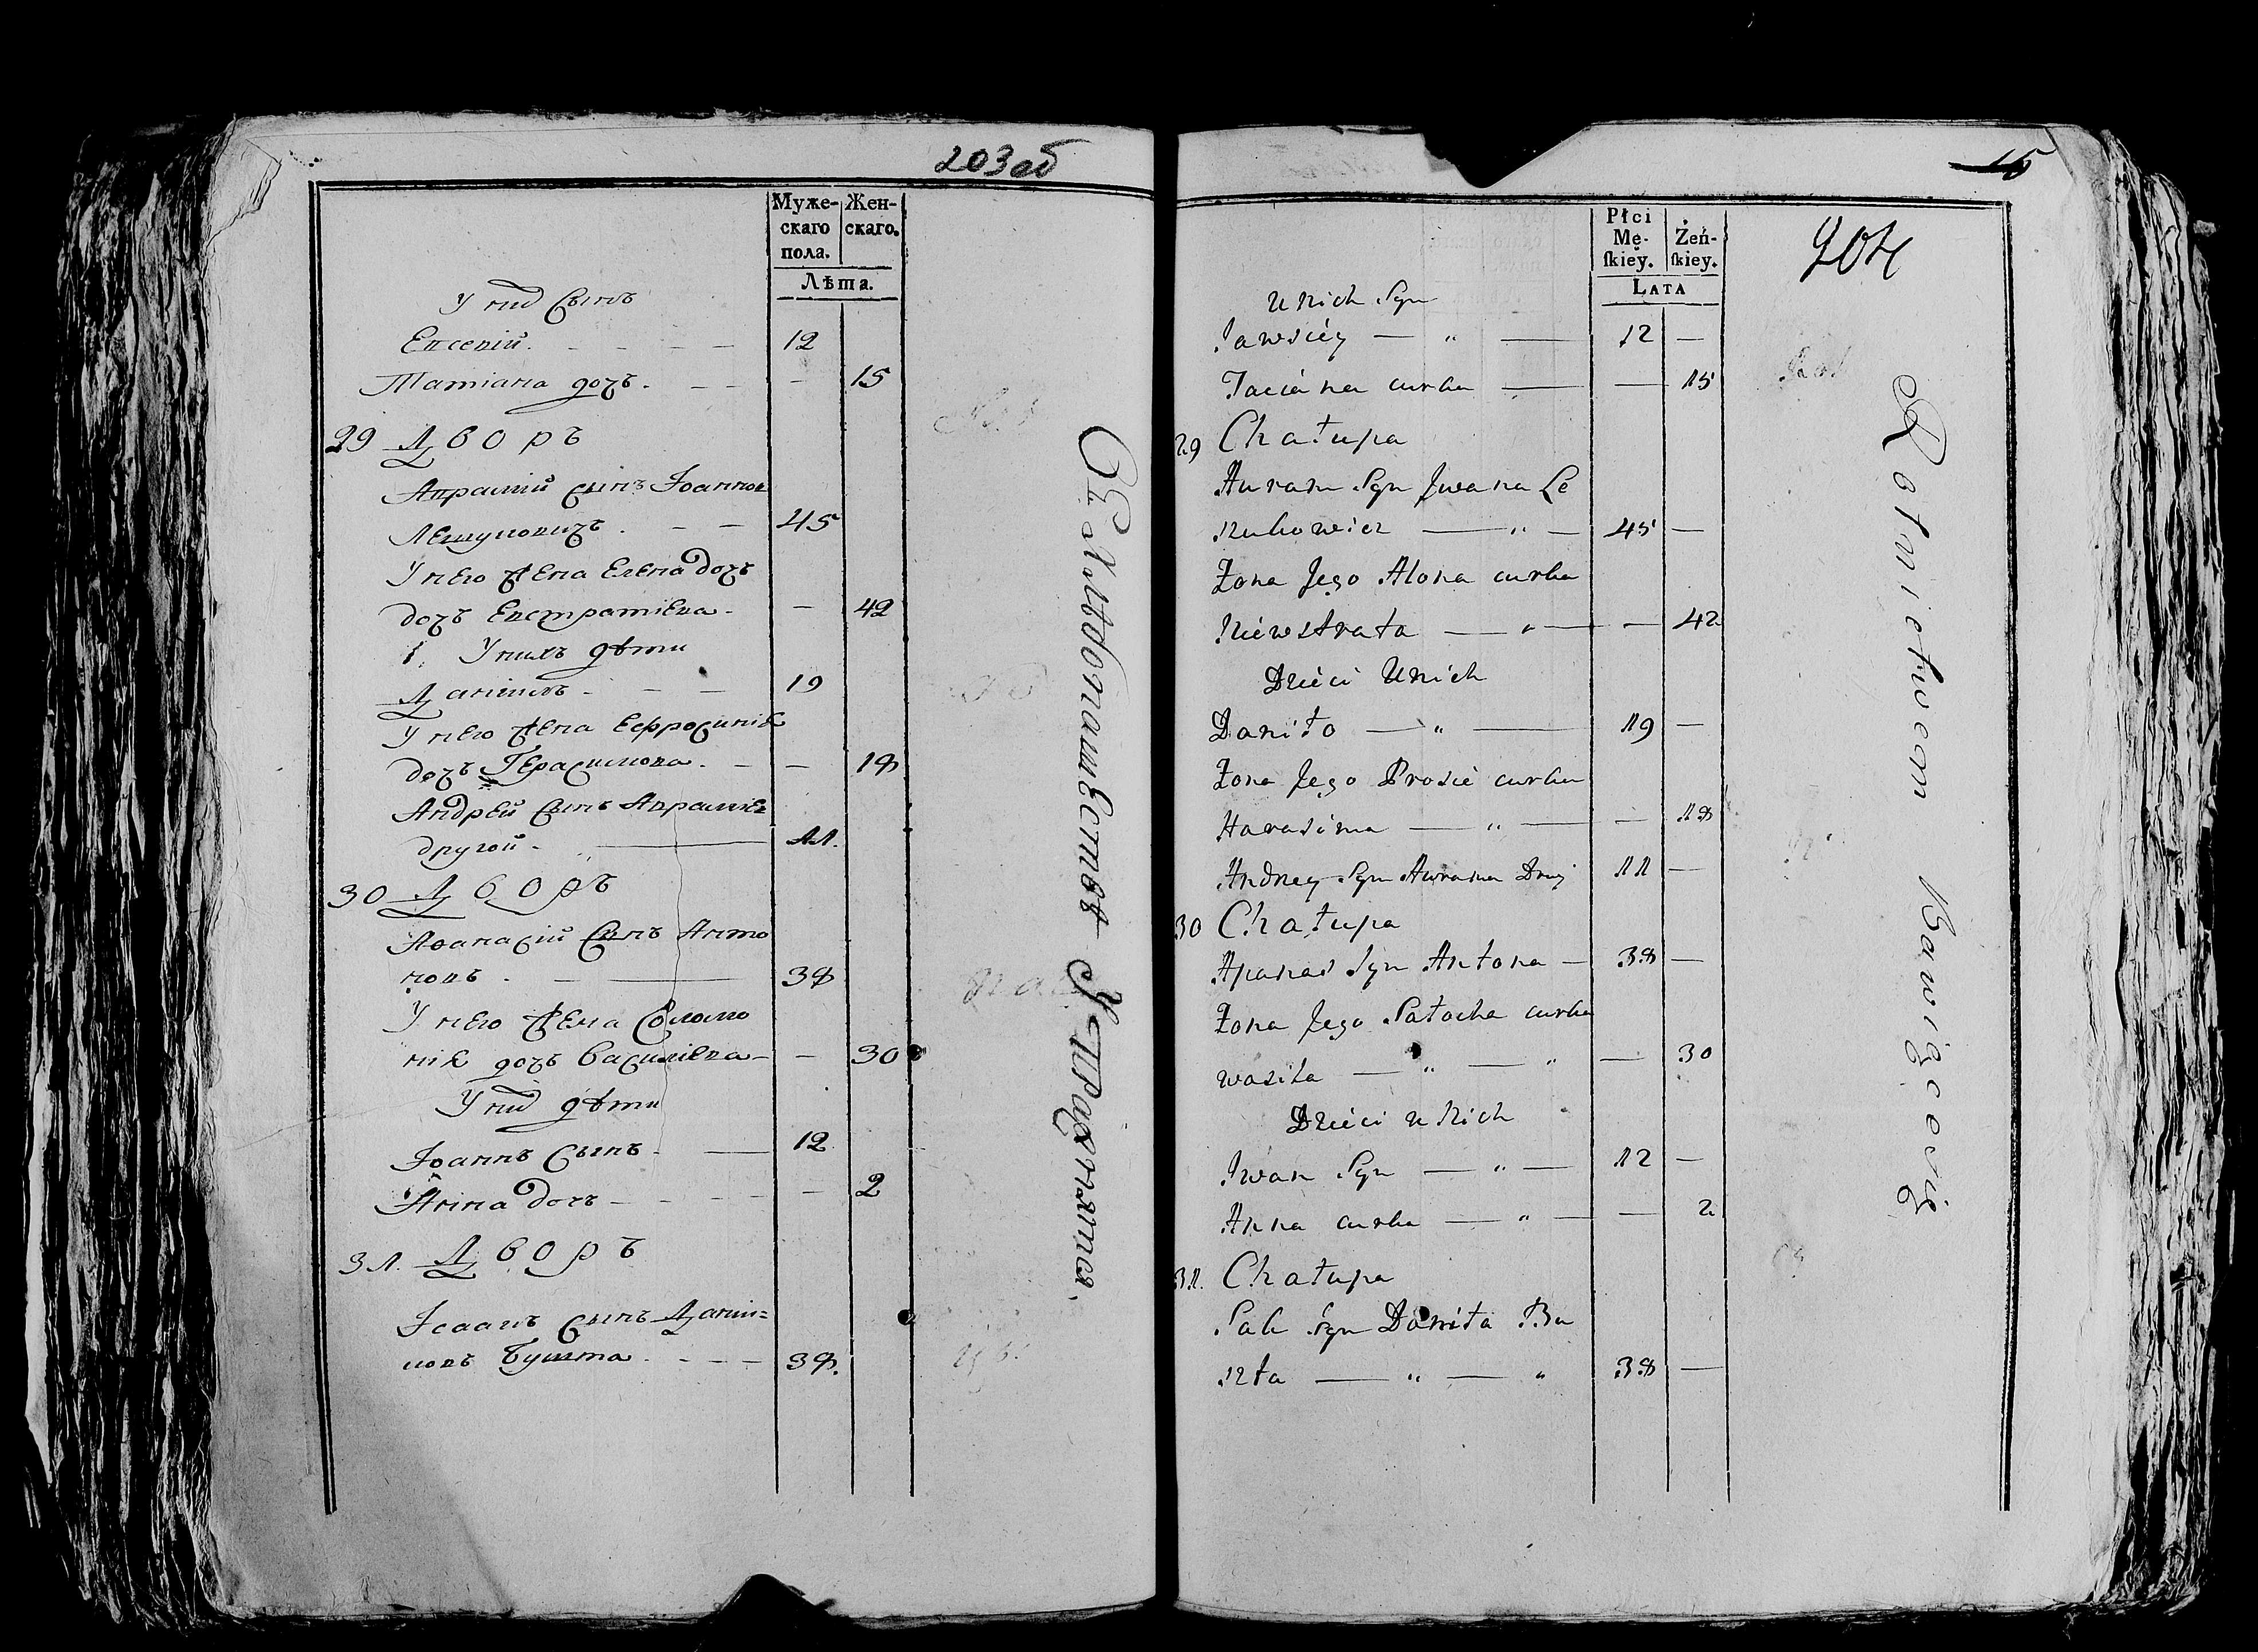 203 об
Муже-
скаго
пола.
Жен-
скаго.
Лѣта.
У них Сынъ
Евсевій. 12
Татіана дочъ. 15
29 Дворъ
Аврамій сынъ Іоаннов
45
У него жена Елена дочъ
дочъ Евстратіева 42
У нихъ дѣти
Даніилъ 19
У него жена Ефросинія
дочъ Герасимова. 18
Андрей Сынъ Аврамія
другой 11.
30 Дворъ
Аѳанасій Сынъ Анто
новъ 38
У него жена Соломо
нія дочъ Василіева 30
У них дѣти
Іоаннъ Сынъ 12
Анна доч 2
31. Дворъ
Ісаакъ сынъ Даніи=
ловъ Бушта 38.
Хлѣбопашествомъ Упражняются.
15
204
Płci
Mę-
ſkiey.
Żeń-
ſkiey.
LATA
U Nich Syn
Jawsiéy — " — 12 —
Taciána curka — — 15
29 Chałupa
Auram Syn Jwana Le
— " — 45 —
Żona Jego Alona curka
Niéwstrata — " — — 42
Dziéci U Nich
Daniło — " — 19 —
Żona Jego Prosié curka
Harasima — " — — 18
Andrey Syn Aurama Drugi 11 —
30 Chałupa
Apanas Syn Antona — 38 —
Żona Jego Sałocha curka
Wasila — " — " — 30
Dziéci u Nich
Jwan Syn — " — 12 —
Anna curka — " — — 2
31. Chałupa
Sak Syn Daniła Bu
szta — " — " 38 —
Rolnictwem Bawię się